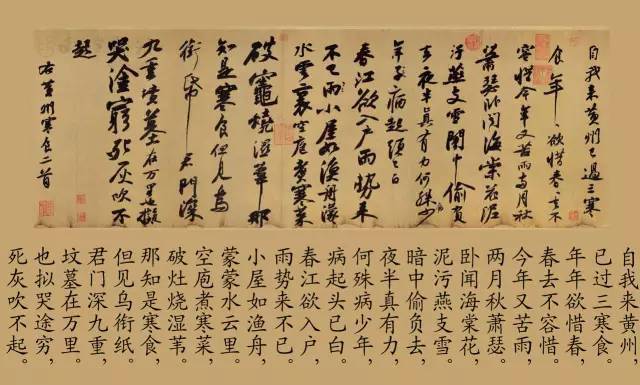 自我来黄州已過三寒
食年〻欲惜春〻去不
容惜今年又苦雨两月秋
蕭瑟卧聞海棠花泥
汙燕支雪闇中偷負
去夜半真有力何殊少
年子病起須已白
春江欲入户雨勢来
不已雨小屋如漁舟濛〻
水雲裏空庖煮寒菜
破竈燒濕葦那
知是寒食但見烏
銜帋君門深
九重墳墓在万里也擬
哭塗窮死灰吹不
起
右黄州寒食二首
自我来黄州，
已过三寒食。
年年欲惜春，
春去不容惜。
今年又苦雨，
两月秋萧瑟。
卧闻海棠花，
泥污燕支雪。
暗中偷负去，
夜半真有力，
何殊病少年，
病起头已白。
春江欲入户，
雨势来不已。
小屋如渔舟，
蒙蒙水云里。
空庖煮寒菜，
破灶烧湿苇。
那知是寒食，
但见乌衔纸。
君门深九重，
坟墓在万里。
也拟哭途穷，
死灰吹不起。